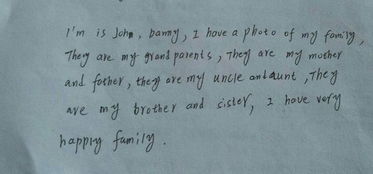 I'm is John, banny, I have a photo of my family,
They are my grand parents, They are my mother
and father, they are my uncle and aunt, They
are my brother and sister, I have very
happy family.